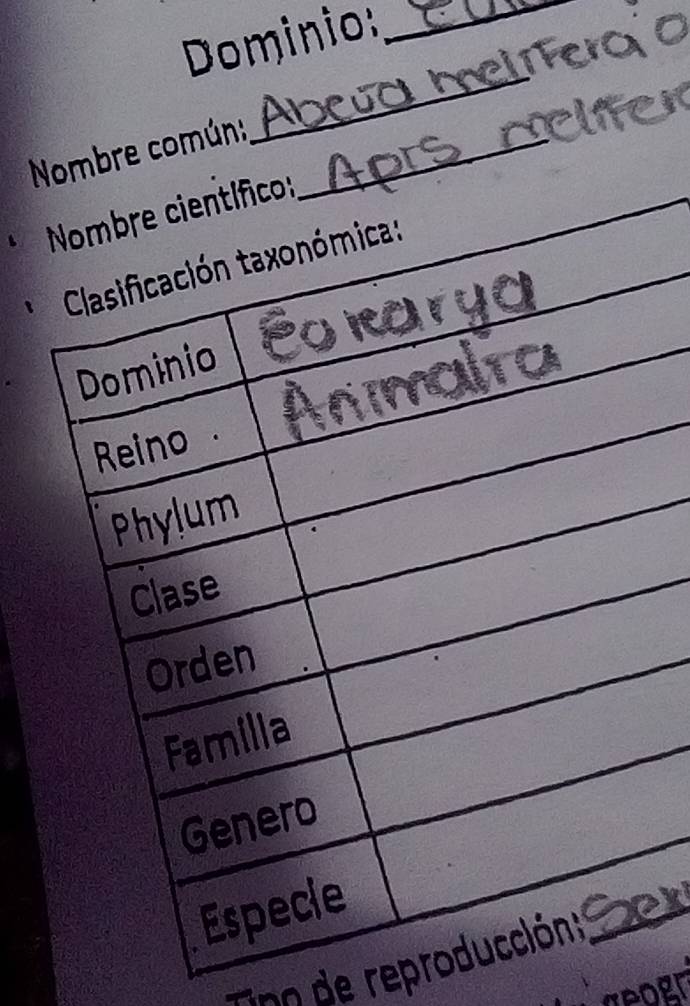 Dominio:
Nombre común: Abeja melifera o
Nombre científico: Apis melifer
Clasificación taxonómica:
Dominio Eukarya
Reino Animalia
Phylum
Clase
Orden
Familia
Genero
Especie
de reproducción: Sex